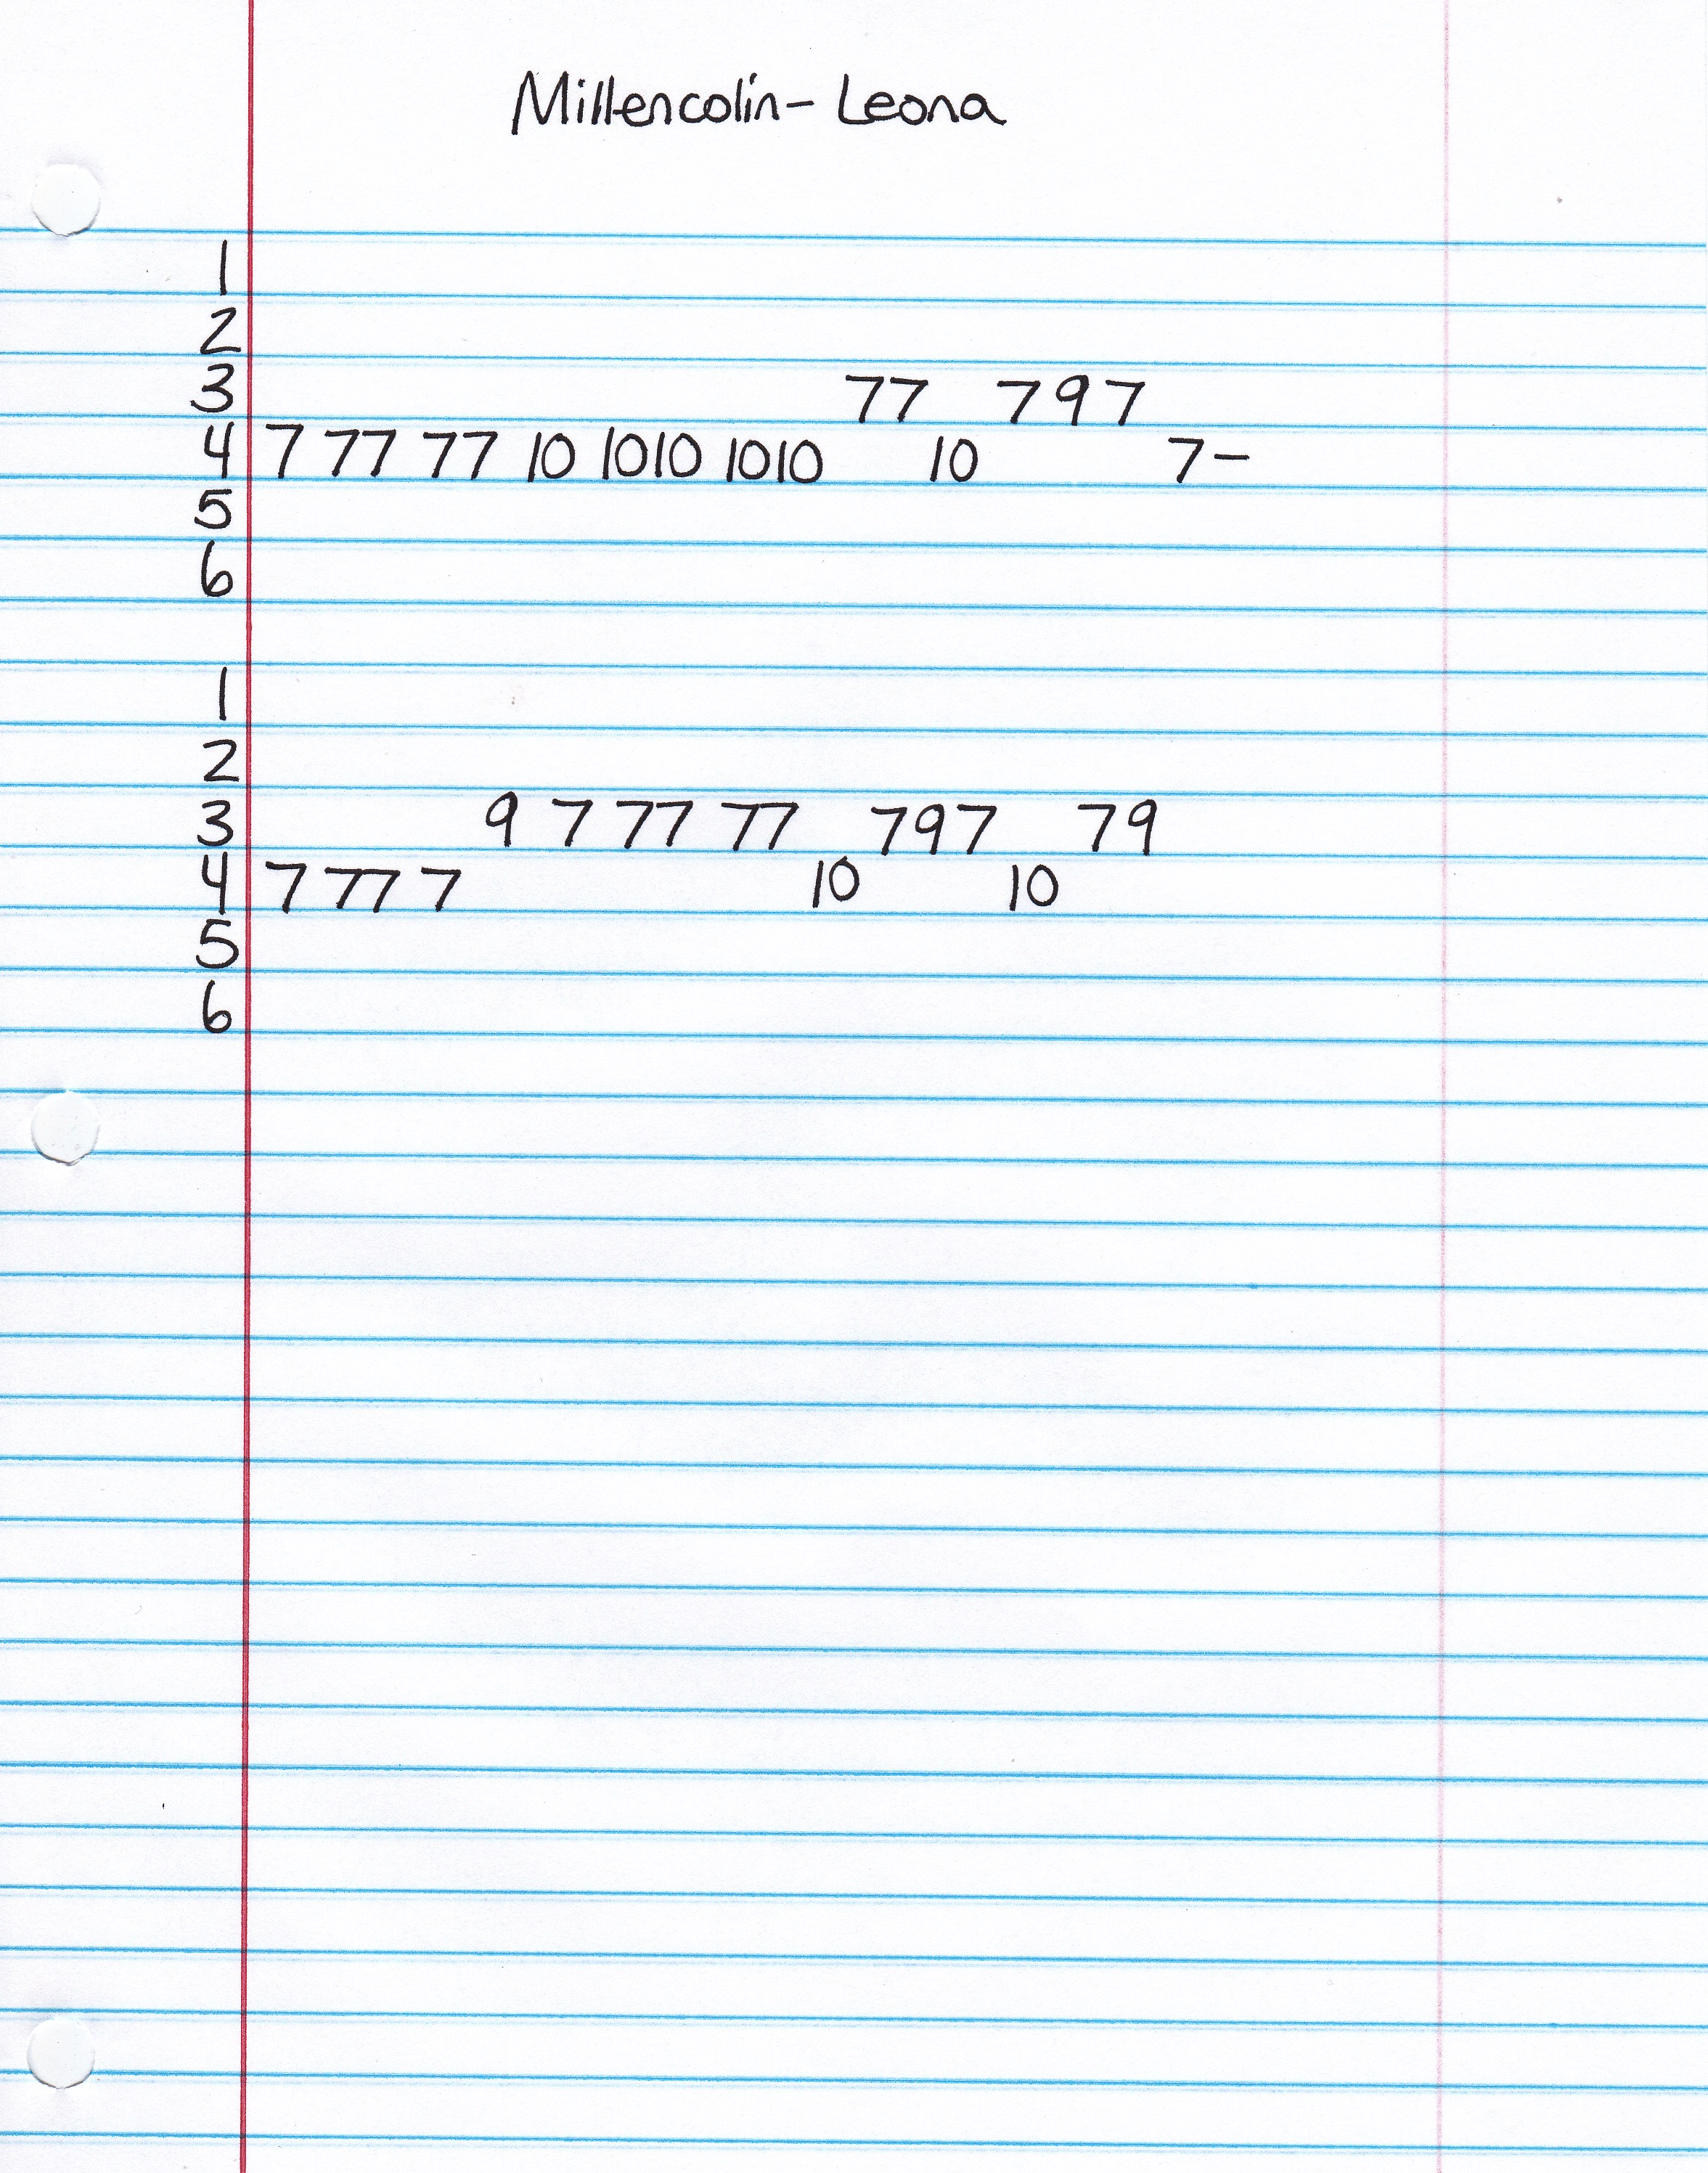 Millencolin - Leona
1
2
3 77 797
4 7 77 77 10 1010 1010 10 7-
5
6
1
2
3 9 7 77 77 797 79
4 7 777 7 10 10
5
6